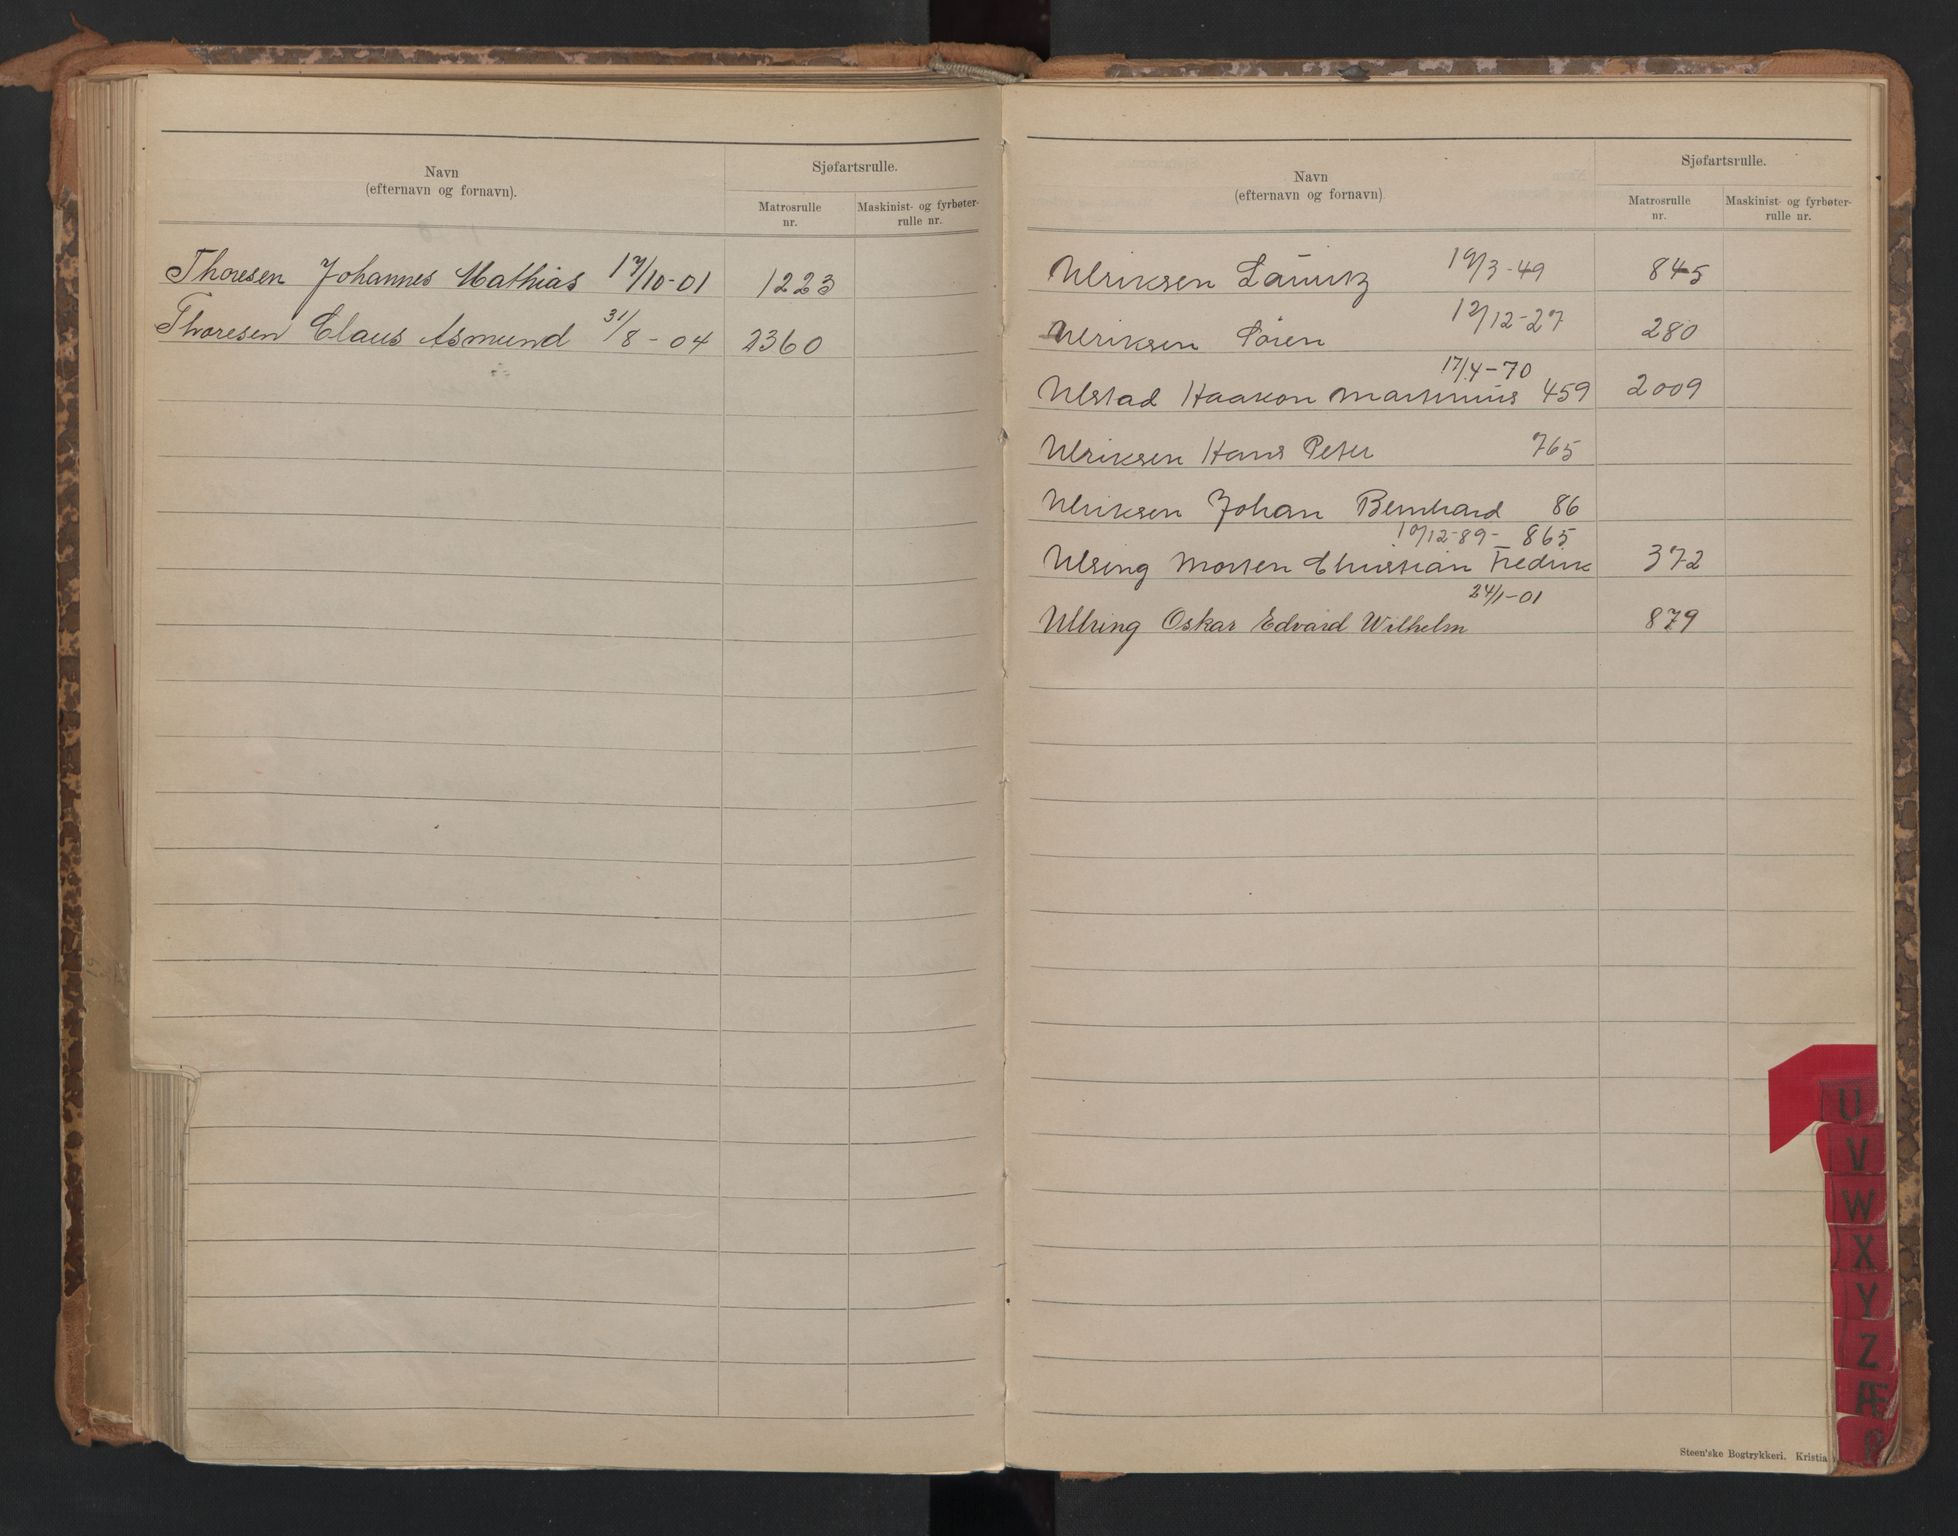 Navn
(efternavn og fornavn).
Sjøfartsrulle.
Matrosrulle
nr.
Maskinist- og fyrbøter-
rulle nr.
Thoresen Johannes Mathias 17/10-01 1223
Thoresen Claus Asmund 31/8-04 2360
Navn
(efternavn og fornavn)
Sjøfartsrulle.
Matrosrulle
nr.
Maskinist- og fyrbøter-
rulle nr.
Ulriksen Lauritz 19/3-49 845
Ulriksen Sören 12/12-27 280
17/4-70
Ulstad Haakon Martinius 459 2009
Ulriksen Hans Peter 765
Ulriksen Johan Bernhard 86
10/12-89- 865
Ulsing Morten Christian Fredrik 372
24/1-01
Ullring Oskar Edvard Wilhelm 879
U
V
W
X
Y
Z
Æ
Steen'ske Bogtrykkeri. Kristia